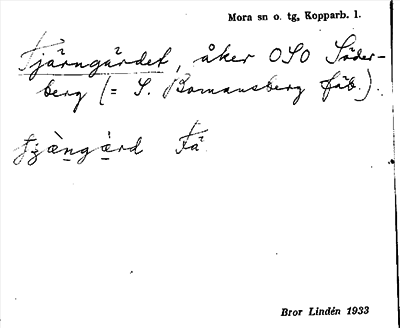 Mora sn o. tg, Kopparb. l.
Fjärngärdet, åker OSO Söder-
berg (= S. Bomansberg fäb.)
Få
Bror Lindén 1933